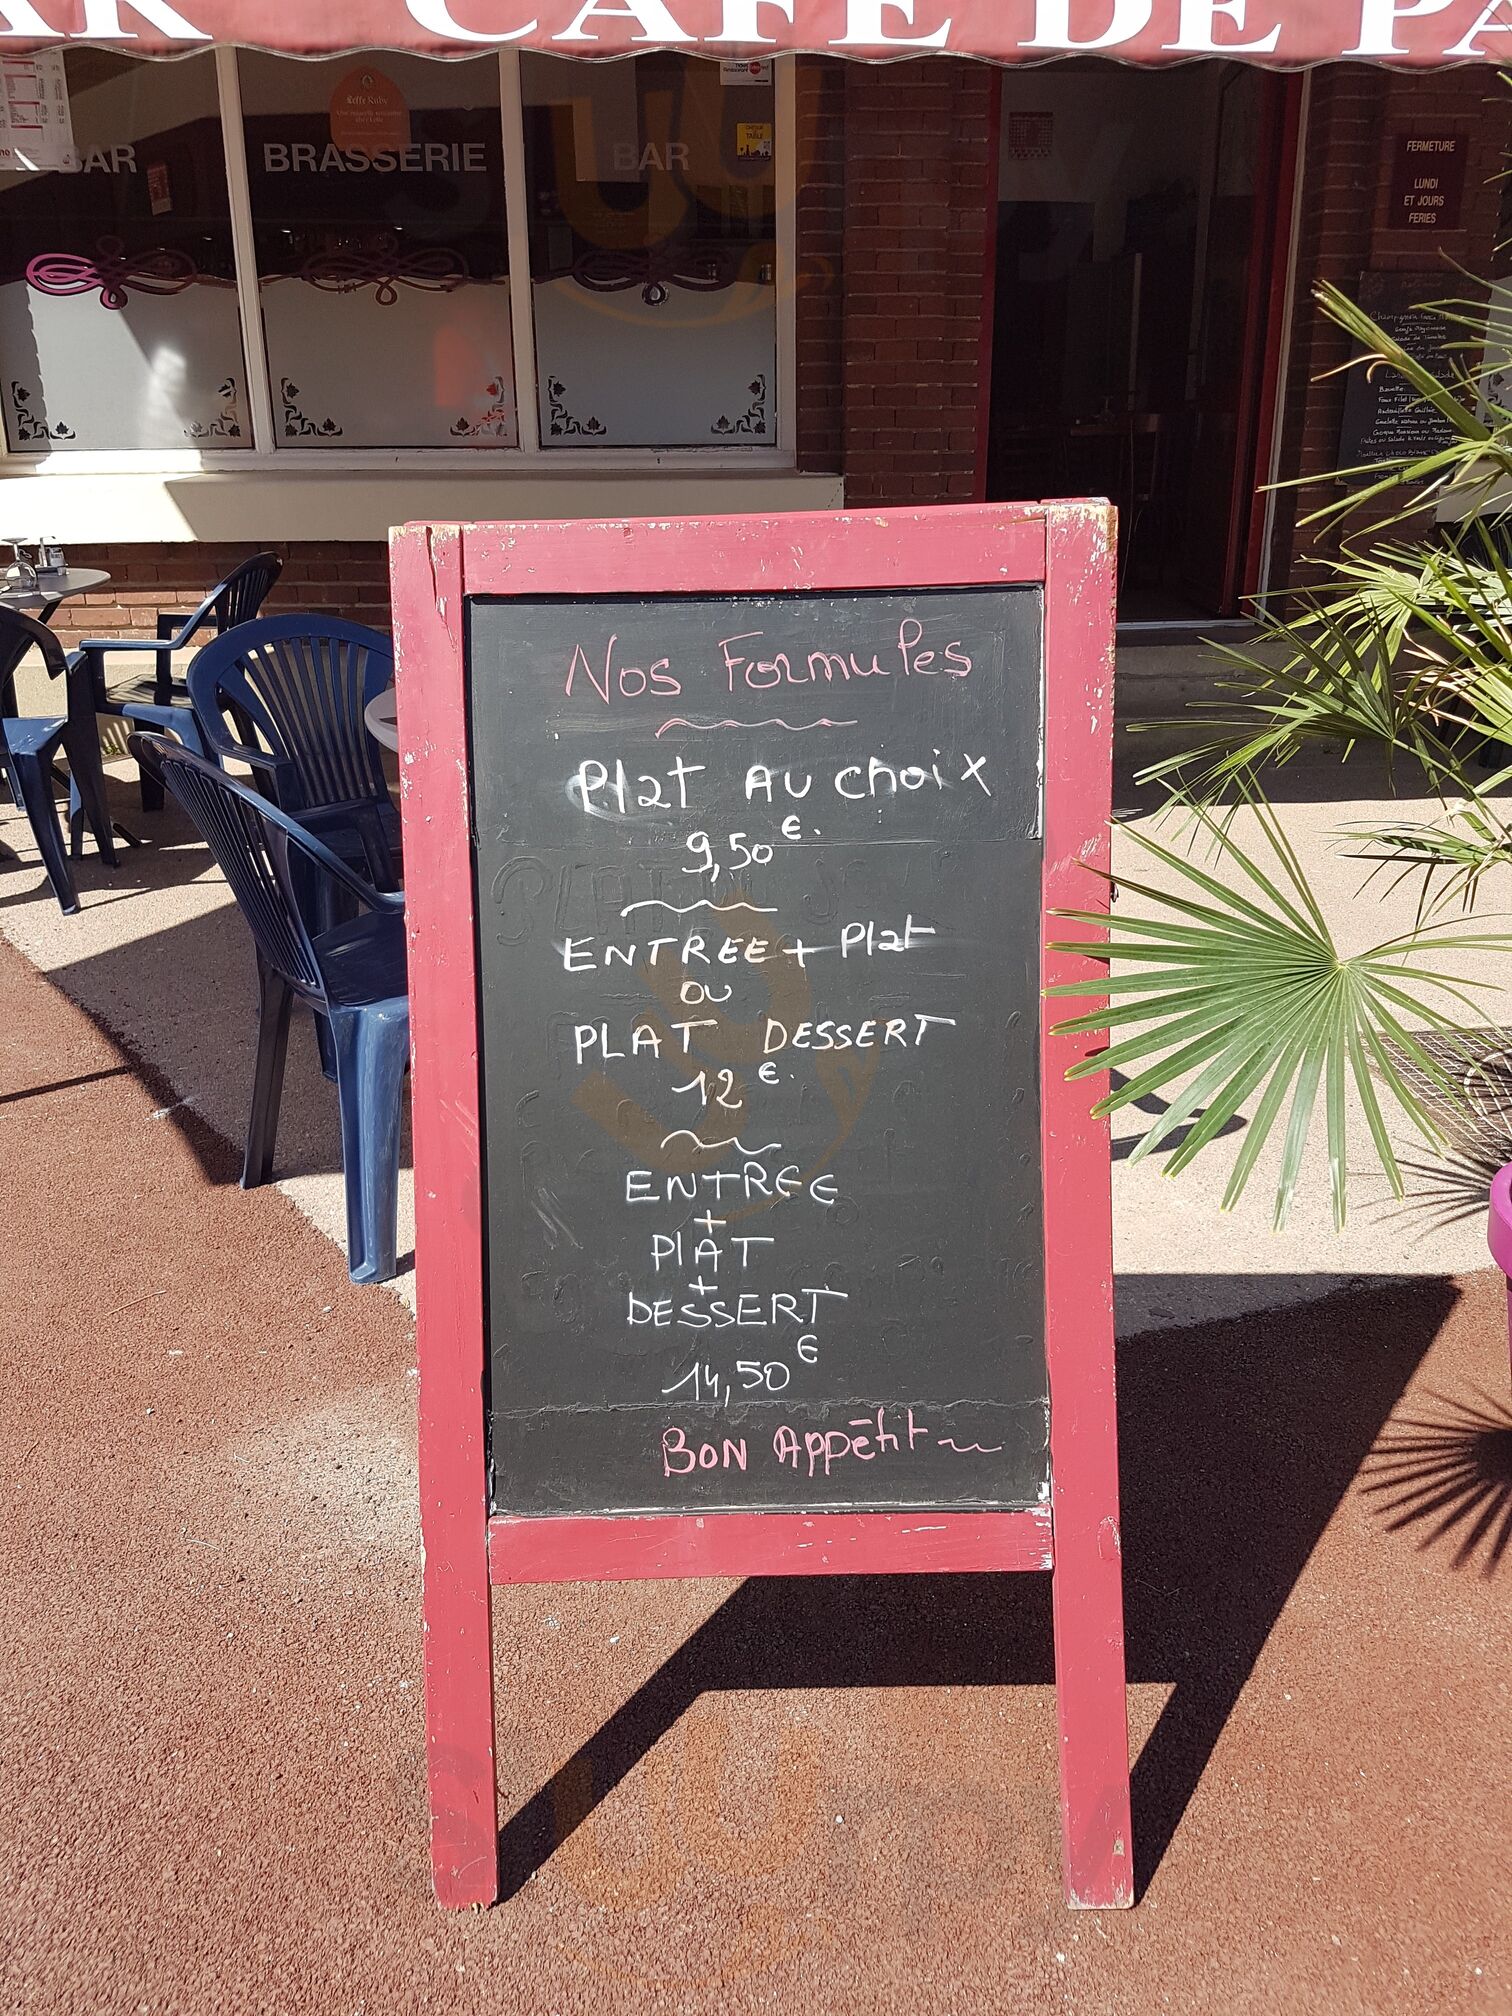 CAFÉ DE
BAR
BRASSERIE
BAR
Leffe Ruby
FERMETURE
LUNDI
ET JOURS
FERIES
Nos Formules
Plat AU choix
9,50 €.
ENTREE + Plat
OU
PLAT DESSERT
12 €.
ENTREE
+
PlAT
+
DESSERT
14,50 €
BON Appétit